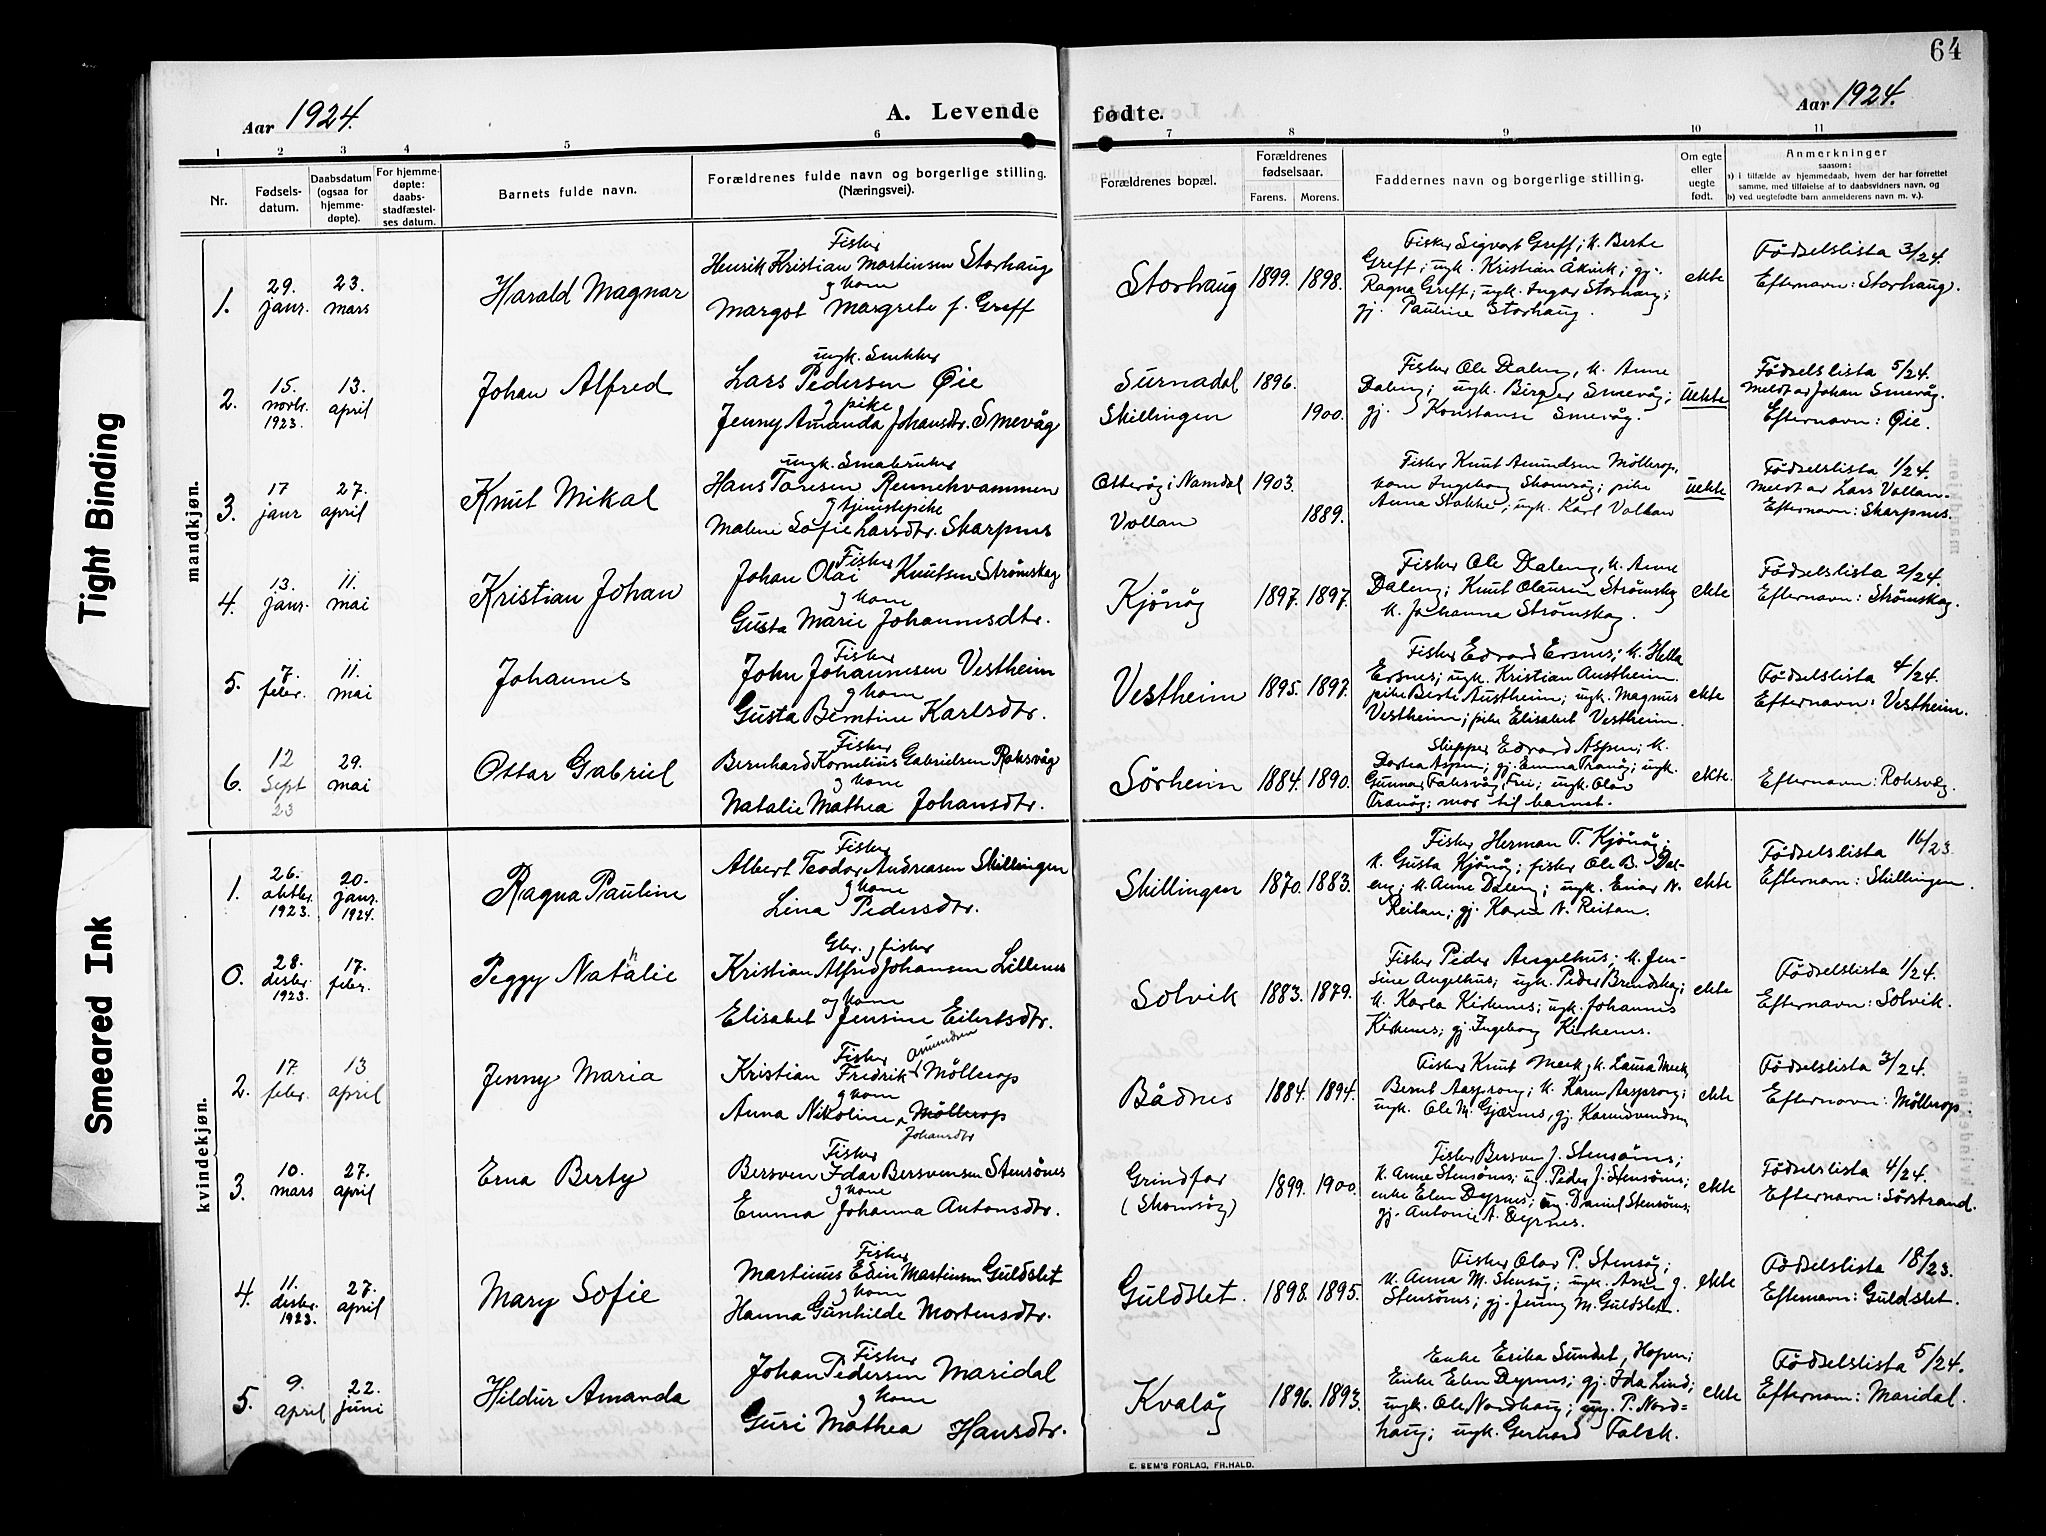 64
Aar 1924.
A. Levende
fødte.
Aar 1924.
1 2 3 4 5 6 7 8 9 10 11
Nr.
Fødsels-
datum.
Daabsdatum
(ogsaa for
hjemme-
døpte).
For hjemme-
døpte:
daabs-
stadfæstel-
ses datum.
Barnets fulde navn.
Forældrenes fulde navn og borgerlige stilling.
(Næringsvei).
Forældrenes bopæl.
Forældrenes
fødselsaar.
Farens. Morens.
Faddernes navn og borgerlige stilling.
Om egte
eller
uegte
født.
Anmerkninger
saasom:
a) i tilfælde av hjemmedaab, hvem der har forrettet
samme, med tilføielse af to daabsvidners navn, og
b) ved uegtefødte barn anmelderens navn m. v.).
mandkjøn.
1.
29.
janr.
23.
mars
Harald Magnar
Fisker
Henrik Kristian Martinsen Storhaug
og kone
Margot Margrete f. Greff
Storhaug
1899. 1898.
Fisker Sigvart Greff; k. Berte
Greff; ungk. Kristian Åkvik; gj.
Ragna Greff; ungk. Ingar Storhaug;
gj. Pauline Storhaug.
ekte
Fødselslista 3/24.
Efternavn: Storhaug.
2.
15.
novbr.
1923.
13.
april
Johan Alfred
ungk. Snekker
Lars Pedersen Øie
og pike
Jenny Amanda Johansdtr. Smevåg
Surnadal
Skillingen
1896.
1900.
Fisker Ole Daleng, k. Anne
Daleng; ungk. Birger Smevåg;
gj. Konstanse Smevåg.
uekte
Fødselslista 5/24.
Meldt av Johan Smevåg.
Efternavn: Øie.
3.
17
janr
27.
april
Knut Mikal
ungk. Småbruker
Hans Toresen Rennehvammen
og tjenestepike
Malene Sofie Larsdtr. Skarpnes
Otterøy i Namdal
Vollan
1903.
1889.
Fisker Knut Amundsen Møllerop,
kone Ingeborg Skomsøy; pike
Anna Stokke; ungk. Karl Vollan
uekte
Fødselslista 1/24.
Meldt av Lars Vollan.
Efternavn: Skarpnes.
4.
13.
janr.
11.
mai
Kristian Johan
Fisker
Johan Olai Knutsen Strømskag
og kone
Gusta Marie Johannesdtr.
Kjønøy
1897. 1897.
Fisker Ole Daleng, k. Anne
Daleng; Knut Olaurin Strømskag
k. Johanna Strømskag.
ekte
Fødselslista 2/24.
Efternavn: Strømskag.
5.
7.
febr.
11.
mai
Johannes
Fisker
John Johannesen Vestheim
og kone
Gusta Berntine Karlsdtr.
Vestheim
1895. 1897.
Fisker Edvard Ersnes; k. Hella
Ersnes; ungk. Kristian Austheim.
pike Berte Austheim; ungk. Magnus
Vestheim; pike Elisabet Vestheim.
ekte
Fødselslista 4/24.
Efternavn: Vestheim.
6.
12
Sept
23
29.
mai
Ottar Gabriel
Fisker
Bernhard Kornelius Gabrielsen Roksvåg
og kone
Natalie Mathea Johansdtr.
Sørheim
1884. 1890.
Skipper Edvard Aspen; k.
Dortea Aspen; gj. Emma Tranøy; ungk.
Gunnar Foksvåg, Frei; ungk. Olav
Tranøy; mor til barnet.
ekte.
Efternavn: Roksvåg.
kvindekjøn.
1.
26.
oktbr.
1923.
20.
janr.
1924.
Ragna Pauline
Fisker
Albert Teodor Andreasen Skillingen
og kone
Lina Pedersdtr.
Skillingen
1870. 1883.
Fisker Herman T. Kjønøy;
k. Gusta Kjønøy; fisker Ole B. Dal-
eng; k. Anne Daleng; ungk. Einar N.
Reitan; gj. Karen N. Reitan.
ekte
Fødselslista 16/23.
Efternavn: Skillingen.
0.
28.
desbr.
1923.
17.
febr.
Peggy Natalie
h
Gbr. og fisker
Kristian Alfred Johansen Lillenes
og kone
Elisabet Jensine Eilertsdtr.
Solvik
1883. 1879.
Fisker Peder Angelhus; k. Jen-
sine Angelhus; ungk. Peder Brendskag;
k. Karla Kirknes; ungk. Johannes
Kirknes; gj. Ingeborg Kirknes.
ekte
Fødselslista 1/24.
Efternavn: Solvik.
2.
17.
febr.
13
april
Jenny Maria
Fisker Amundsen
Kristian Fredrik Møllerop
og kone
Anna Nikoline Møllerop
Johansdtr
Bådnes
1884. 1894.
Fisker Knut Meek, k. Laura Meek,
Bernt Aasprong; k. Karen Aasprong;
ungk. Ole M. Gjernes, gj. Karen Svendsen
ekte
Fødselslista 3/24.
Efternavn: Møllerop.
3.
10.
mars
27.
april
Erna Berty
Fisker
Bersven Idar Bersvensen Stensønes
og kone
Emma Johanna Antonsdtr.
Grindfar
(Skomsøy)
1899. 1900.
Fisker Bersven J. Stensønes;
k. Anne Stensønes; ug. Peder J. Stensønes;
enke Elen Dyrnes; ug. Daniel Stensønes;
gj. Antonie A. Dyrnes.
ekte
Fødselslista 4/24.
Efternavn: Sørstrand.
4.
11.
desbr.
1923.
27.
april
Mary Sofie
Fisker
Martinus Edin Martinsen Guldslet
og kone
Hanna Gunhilde Mortensdtr.
Guldslet.
1898. 1895.
Fisker Olav P. Stensøy;
k. Anna M. Stensøy; ungk. Arne J.
Stensønes; gj. Jenny M. Guldslet.
ekte
Fødselslista 18/23.
Efternavn: Guldslet.
5.
9.
april
22.
juni
Hildur Amanda
Fisker
Johan Pedersen Maridal
og kone
Guri Mathea Hansdtr.
Kvaløy
1896. 1893.
Enke Erika Sundet, Hopen;
Enke Elen Dyrnes; gj. Ida Lind;
ungk. Ole Nordhaug; ung. P. Nord=
haug; ungk. Gerhard Falck.
ekte
Fødselslista 5/24.
Efternavn: Maridal.
E. SEM'S FORLAG, FR.HALD.
Tight Binding
Smeared Ink